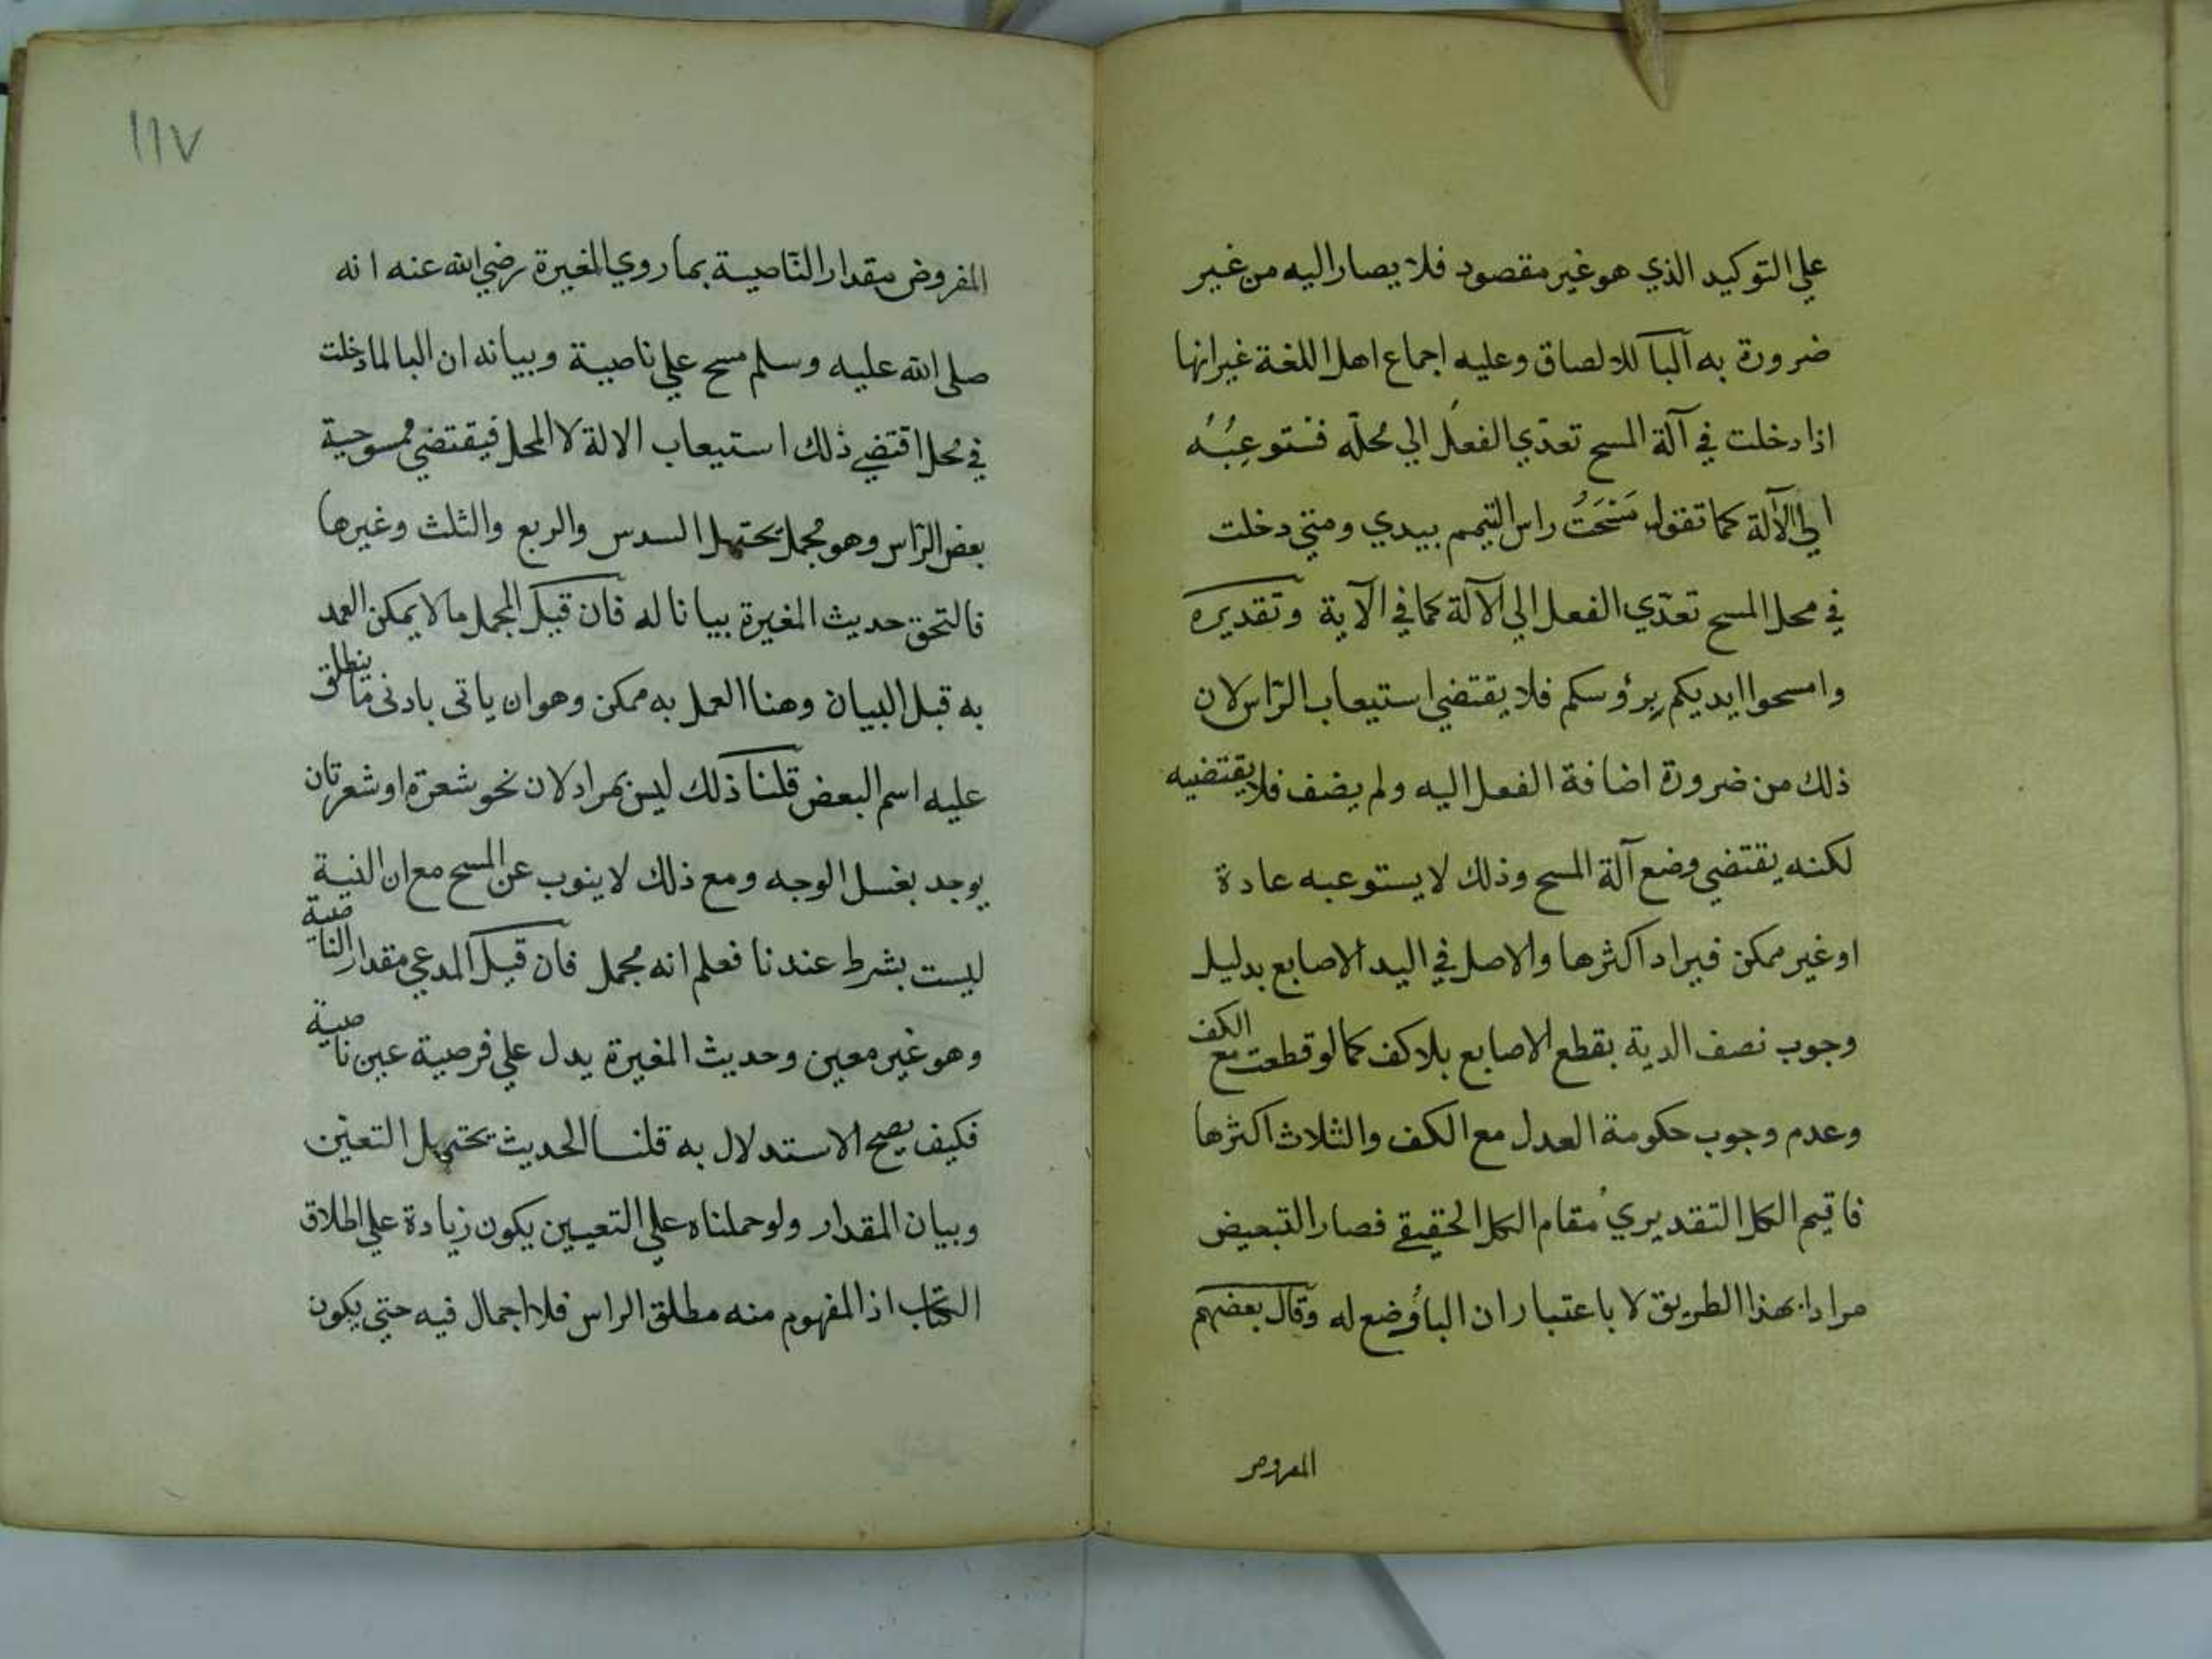 علي التوكيد الذي هو غير مقصود فلا يصار اليه من غير
ضرورة به البآ للالصاق وعليه اجماع اهل اللغة غير انها
اذا دخلت في آلة المسح تعدّي الفعل الي محلّه فتستوعبُه
الي الآلة كما تقول مَسَحَتُ راس اليتيم بيدي ومتي دخلت
في محل المسح تعدّي الفعل الي الآلة كما في الآية وتقديره
وامسحوا ايديكم بِرؤوسكم فلا يقتضي استيعاب الرّاس لان
ذلك من ضرورة اضافة الفعل اليه ولم يضف فلا يقتضيه
لكنه يقتضي وضع آلة المسح وذلك لا يستوعبه عادة
او غير ممكن فيراد اكثرها والاصل في اليد الاصابع بدليل
وجوب نصف الدية بقطع الاصابع بلا كف كما لو قطعت مع الكف
وعدم وجوب حكومة العدل مع الكف والثلاث اكثرها
فاقيم الكل التقديري مقام الكل الحقيقي فصار التبعيض
مرادا بهذا الطريق لا باعتبار ان البا وُضع له وقال بعضهم
المفروض
١١٧
المفروض مقدار النّاصية بما روي المغيرة رضي الله عنه انه
صلي الله عليه وسلم مسح علي ناصية وبيانه ان البا لما دخلت
في محل اقتضي ذلك استيعاب الالة لا المحل فيقتضي ممسوحية
بعض الرّاس وهو مجمل يحتمل السدس والربع والثلث وغيرها
فالتحق حديث المغيرة بيانا له فان قيل المجمل ما لا يمكن العمل
به قبل البيان وهنا العمل به ممكن وهو ان ياتي بادني ما ينطلق
عليه اسم البعض قلنا ذلك ليس بمراد لان نحو شعرة او شعرتان
يوجد بغسل الوجه ومع ذلك لا ينوب عن المسح مع ان النية
ليست بشرط عندنا فعلم انه مجمل فان قيل المدعي مقدار الناصية
وهو غير معين وحديث المغيرة يدل علي فرصية عين ناصية
فكيف يصح الاستدلال به قلنا الحديث يحتمل التعين
وبيان المقدار ولو حملناه علي التعيين يكون زيادة علي اطلاق
الكتاب اذ المفهوم منه مطلق الراس فلا اجمال فيه حتي يكون